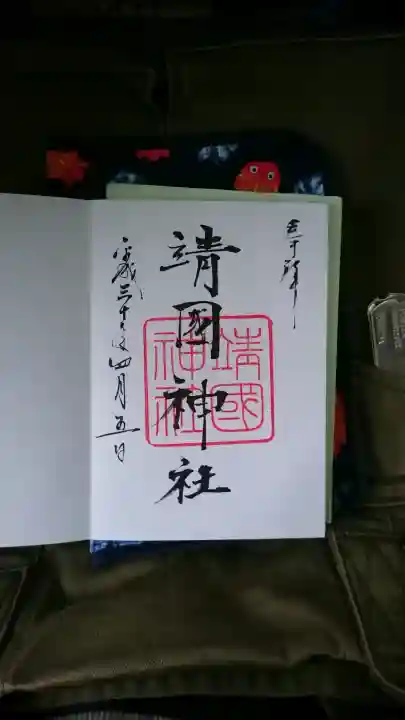 靖國神社
靖國
神社
平成三十年四月五日